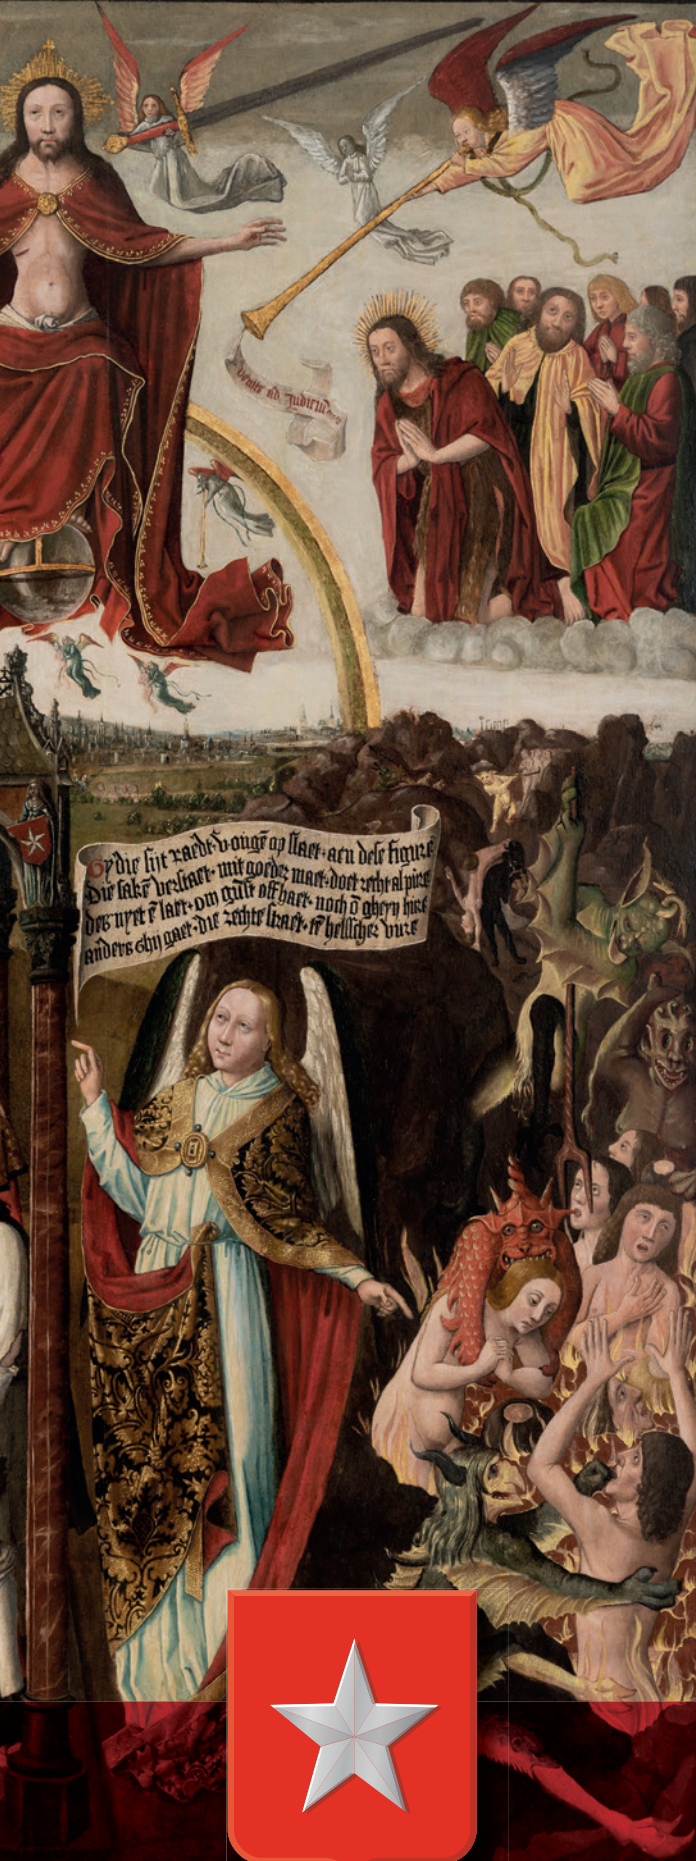 venite ad Judiciū
Gy die sijt raedt· v ougē op slaet· aen dese figure
Die sakē verstaet· mit goeder maet· doet recht al pure
des nyet ē laet· om gūst off haet· noch ō gheyn hure
anders ghij gaet· die rechte straet· tē helsscher vure